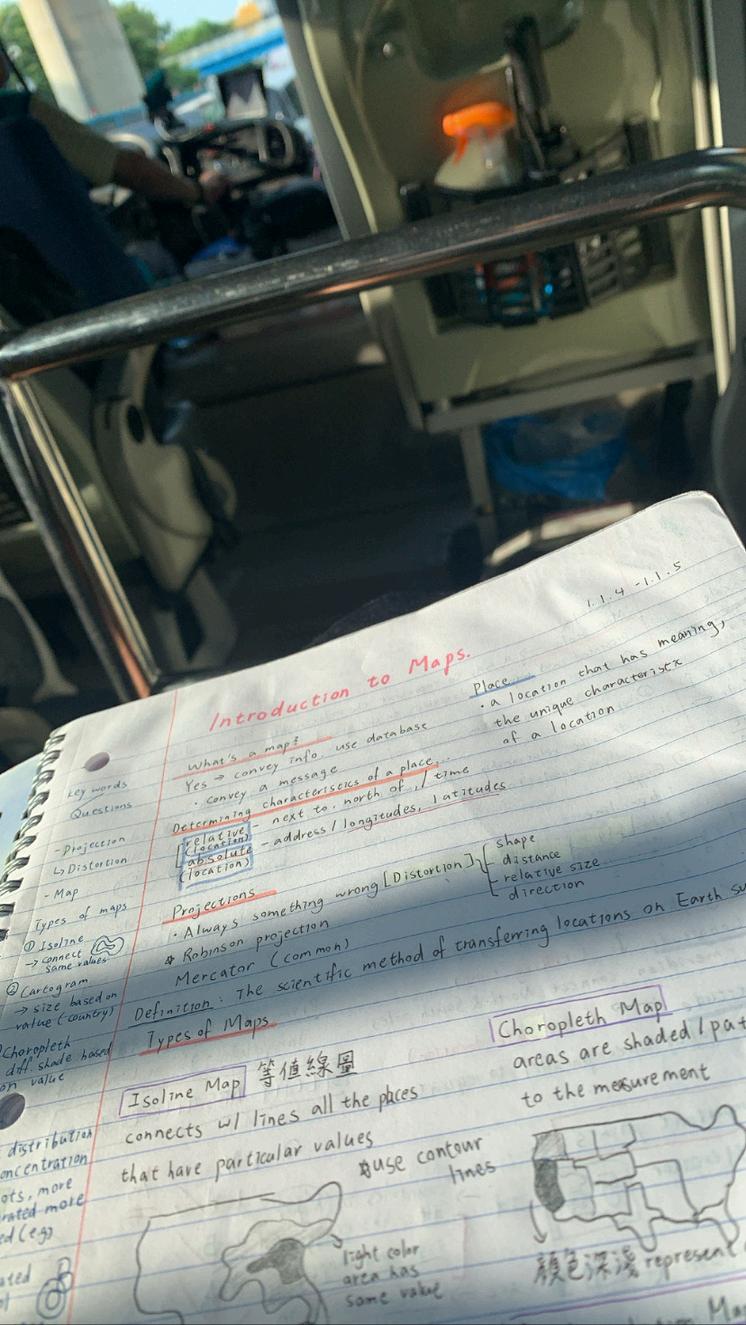 1.1.4 - 1.1.5
Introduction to Maps.
Place
· a location that has meaning,
the unique characteristx
of a location
What's a map?
Yes → convey info use database
· convey a message
Determining characteristics of a place
relative (location) - next to, north of, / time
absolute (location) - address / longitudes, latitudes
Projections
· Always something wrong [Distortion]
shape
distance
relative size
direction
Robinson projection
Mercator (common)
Definition: The scientific method of transferring locations on Earth su
Types of Maps
Isoline Map 等值線圖
connects w/ lines all the places
that have particular values
use contour
lines
light color
area has
same value
Choropleth Map
areas are shaded / pat
to the measurement
顏色深淺 represent
Key words
Questions
- Projection
↳ Distortion
- Map
Types of maps
① Isoline
→ connect
same values
② Cartogram
→ size based on
value (country)
Choropleth
diff. shade based
on value
distribution
oncentration
ots, more
rated more
ed (eg)
ated